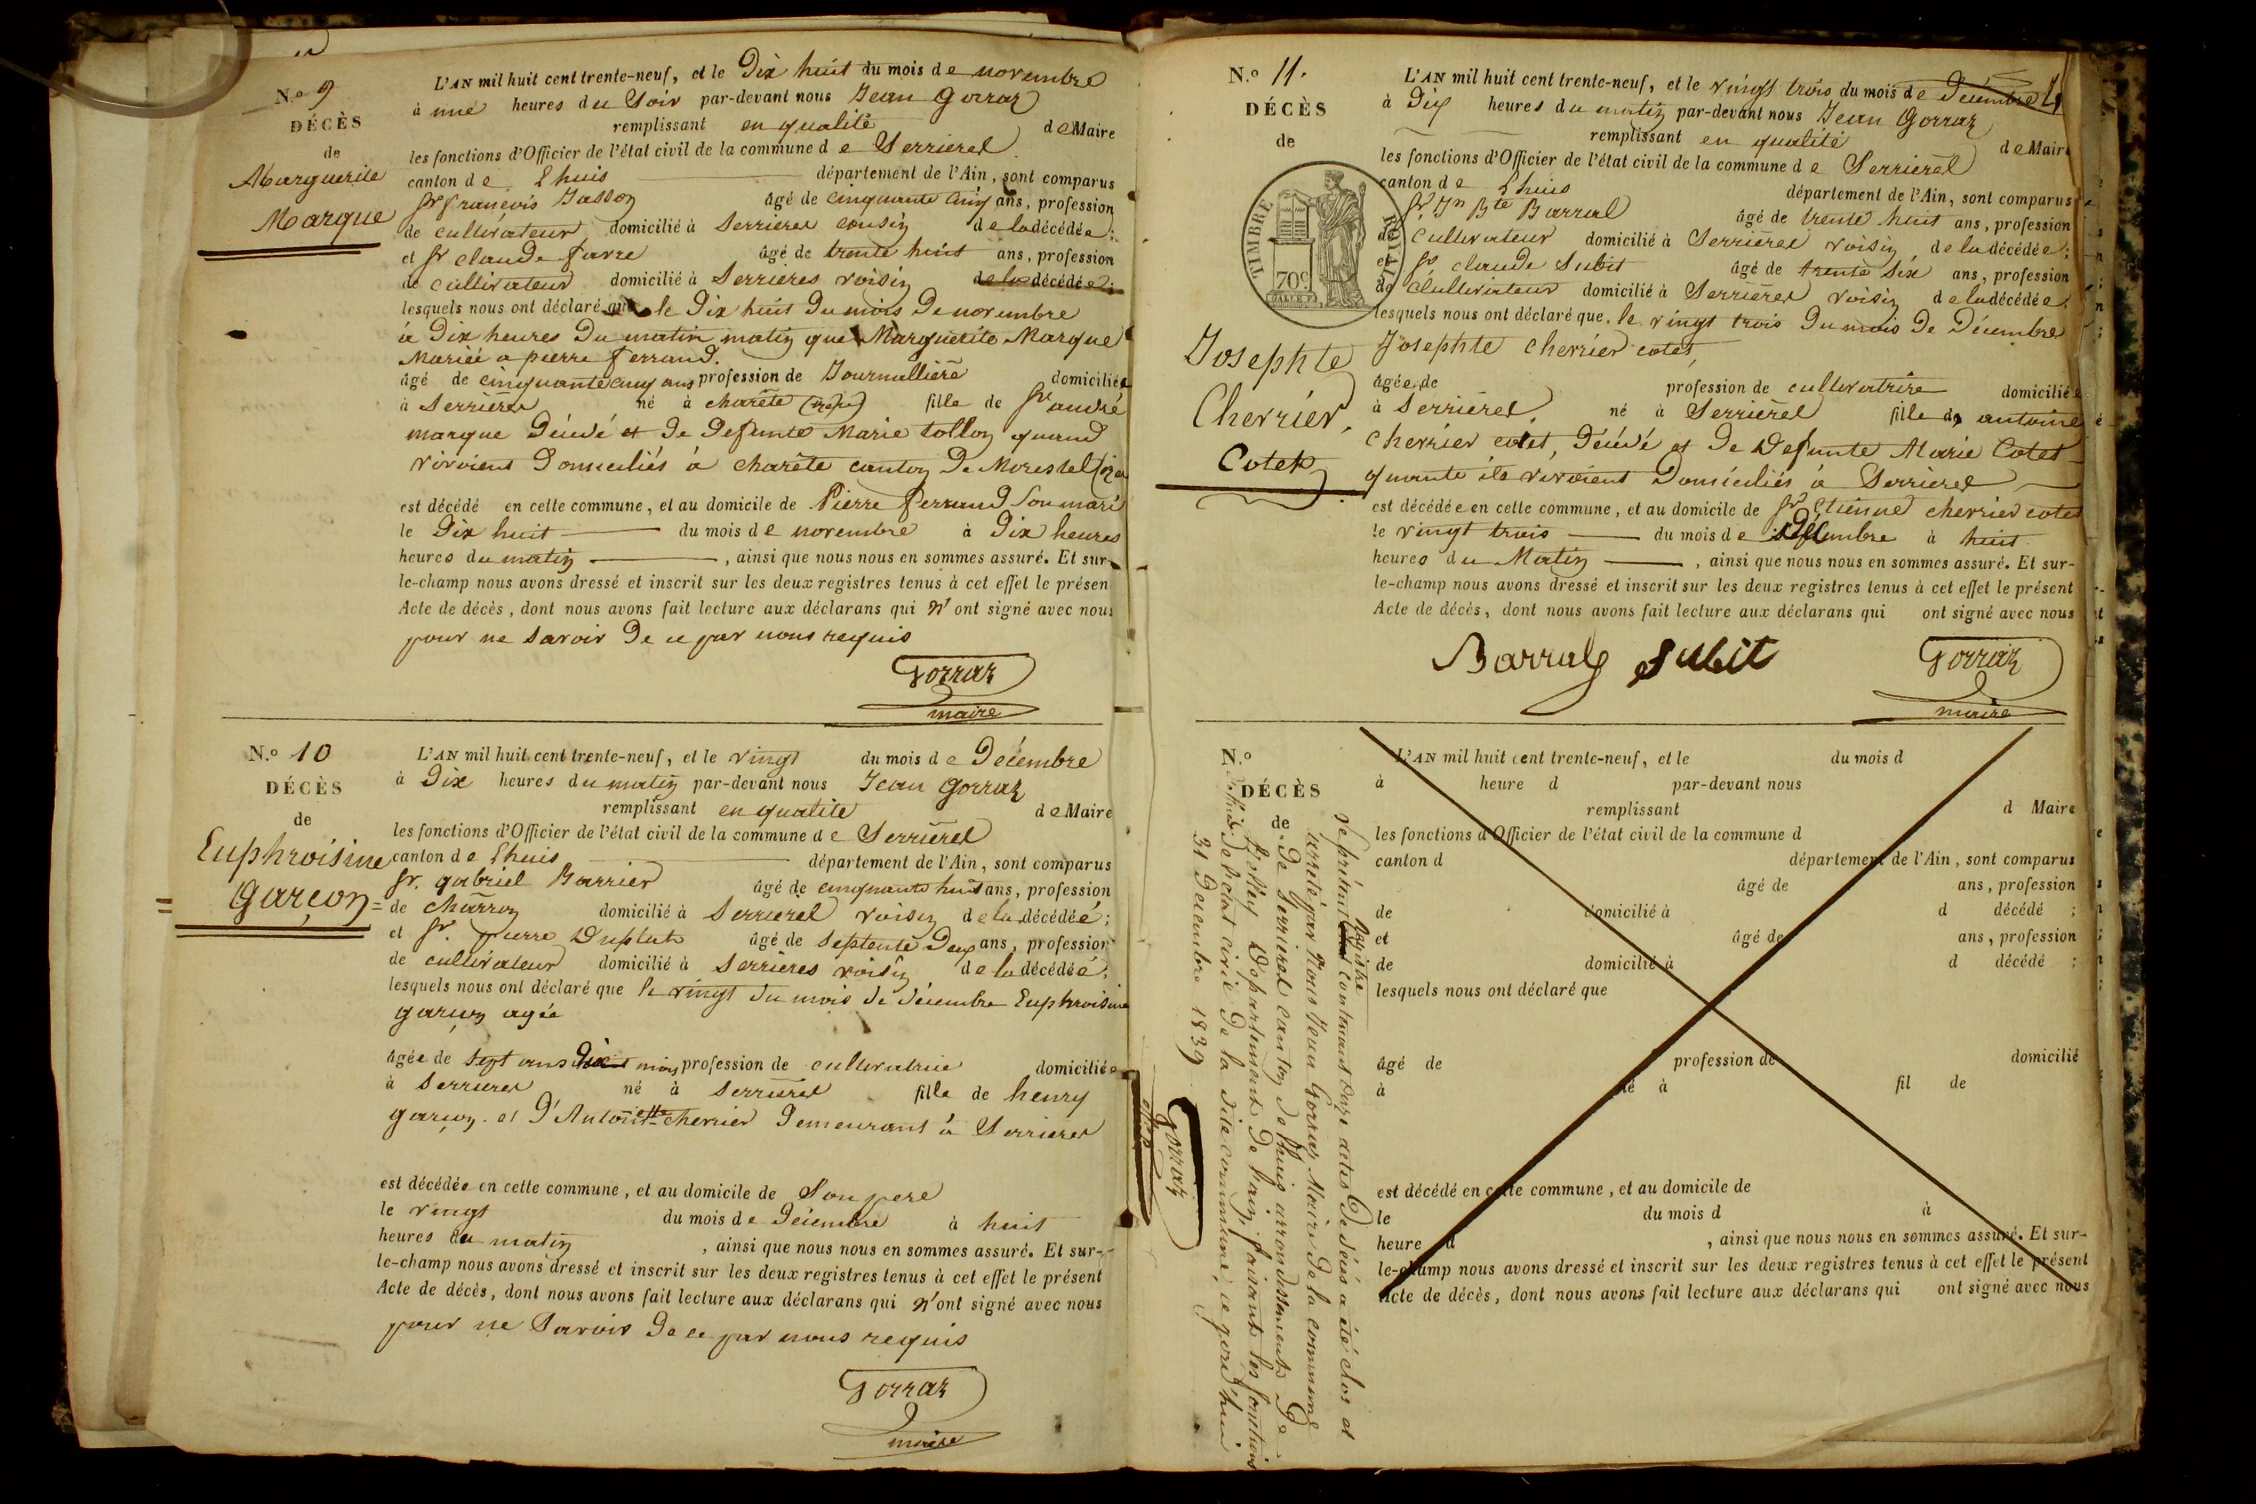 N.o 9
DÉCÈS
de
Marguerite
Marque
L'AN mil huit cent trente-neuf, et le Dix huit du mois de novembre
à une heures du Soir par-devant nous Jean Gorraz
remplissant en qualité de Maire
les fonctions d'Officier de l'état civil de la commune de Serrieres
canton de Lhuis département de l'Ain, sont comparus
Sr francois Jasson âgé de cinquante cinq ans, profession
de cultivateur domicilié à Serrieres cousin de la décédée;
et Sr claude favre âgé de trente huit ans, profession
de cultivateur domicilié à Serrieres voisin de la décédée;
lesquels nous ont déclaré que le Dix huit du mois De novembre
à Dix heures Du matin matin que Marguerite Marque
Mariée a pierre ferrand.
âgé de cinquante cinq ans profession de Journalliere domiciliée
à Serrieres né à charête fille de Sr andré
marque Décédé et De Defunte Marie tollon quand
vivoient Domiciliés à charête canton De Morestel
est décédé en cette commune, et au domicile de Pierre ferrand Son mari
le Dix huit du mois de novembre à Dix heures
heures du matin, ainsi que nous nous en sommes assuré. Et sur-
le-champ nous avons dressé et inscrit sur les deux registres tenus à cet effet le présen
Acte de décès, dont nous avons fait lecture aux déclarans qui n'ont signé avec nous
pour ne savoir De ce par nous requis
Gorraz
maire
N.o 10
DÉCÈS
de
Euphroisine
Garçon
L'AN mil huit cent trente-neuf, et le vingt du mois de Décembre
à Dix heures du matin par-devant nous Jean Gorraz
remplissant en qualité de Maire
les fonctions d'Officier de l'état civil de la commune de Serrieres
canton de Lhuis département de l'Ain, sont comparus
Sr. gabriel Barrier âgé de cinquante huit ans, profession
de charron domicilié à Serrieres voisin de la décédée;
et Sr. pierre Duplatr âgé de septente Deux ans, profession
de cultivateur domicilié à Serrieres voisin de la décédée;
lesquels nous ont déclaré que le vingt du mois de décembre Euphroisine
garçon agée
âgée de sept ans Dix mois profession de cultivatrice domiciliée
à Serrieres né à Serrieres fille de henry
garçon. et D'Antoinette cherrier Demeurant à Serrieres
est décédée en cette commune, et au domicile de Son pere
le vingt du mois de Décembre à huit
heures du matin, ainsi que nous nous en sommes assuré. Et sur-
le-champ nous avons dressé et inscrit sur les deux registres tenus à cet effet le présent
Acte de décès, dont nous avons fait lecture aux déclarans qui n'ont signé avec nous
pour ne Savoir De ce par nous requis
Gorraz
maire
N.o 11.
DÉCÈS
de
TIMBRE ROYAL
70c.
Josephte
Cherrier
Cotet
L'AN mil huit cent trente-neuf, et le vingt trois du mois de Décembre
à Dix heures du matin par-devant nous Jean Gorraz
remplissant en qualité de Maire
les fonctions d'Officier de l'état civil de la commune de Serrieres
canton de Lhuis département de l'Ain, sont comparus
Sr. Jn Bte Barral âgé de trente huit ans, profession
de Cultivateur domicilié à Serrieres voisin de la décédée;
et Sr claude Subit âgé de trente six ans, profession
de Cultivateur domicilié à Serrieres voisin de la décédée;
lesquels nous ont déclaré que. le vingt trois Du mois De Décembre
Josephte cherrier cotet
âgée de profession de cultivatrice domiciliée
à Serrieres né à Serrieres fille de antoine
cherrier cotet, Décédé et De Defunte Marie Cotet
quante ils vivoient Domiciliés à Serrieres
est décédée en cette commune, et au domicile de Sr Etienne cherrier cotet
le vingt trois du mois de Décembre à huit
heures du Matin, ainsi que nous nous en sommes assuré. Et sur-
le-champ nous avons dressé et inscrit sur les deux registres tenus à cet effet le présent
Acte de décès, dont nous avons fait lecture aux déclarans qui ont signé avec nous
Barral Subit Gorraz
maire
N.o
DÉCÈS
de
L'AN mil huit cent trente-neuf, et le du mois d
à heure d par-devant nous
remplissant d Maire
les fonctions d'Officier de l'état civil de la commune d
canton d département de l'Ain, sont comparus
âgé de ans, profession
de domicilié à d décédé ;
et âgé de ans, profession
de domicilié à d décédé ;
lesquels nous ont déclaré que
âgé de profession de domicilié
à né à fil de
est décédé en cette commune, et au domicile de
le du mois d à
heure d , ainsi que nous nous en sommes assuré. Et sur-
le-champ nous avons dressé et inscrit sur les deux registres tenus à cet effet le présent
Acte de décès, dont nous avons fait lecture aux déclarans qui ont signé avec nous
Le présent registre contenant Onze actes De décés a été clos et
arrêté par Nous Jean Gorraz Maire De la commune
De Serrieres canton de Lhuis arrondissement De
Belley Département De l'ain, faisant les fonctions
De l'état civil De la dite commune, ce jourd'hui
31 Décembre 1839
Gorraz